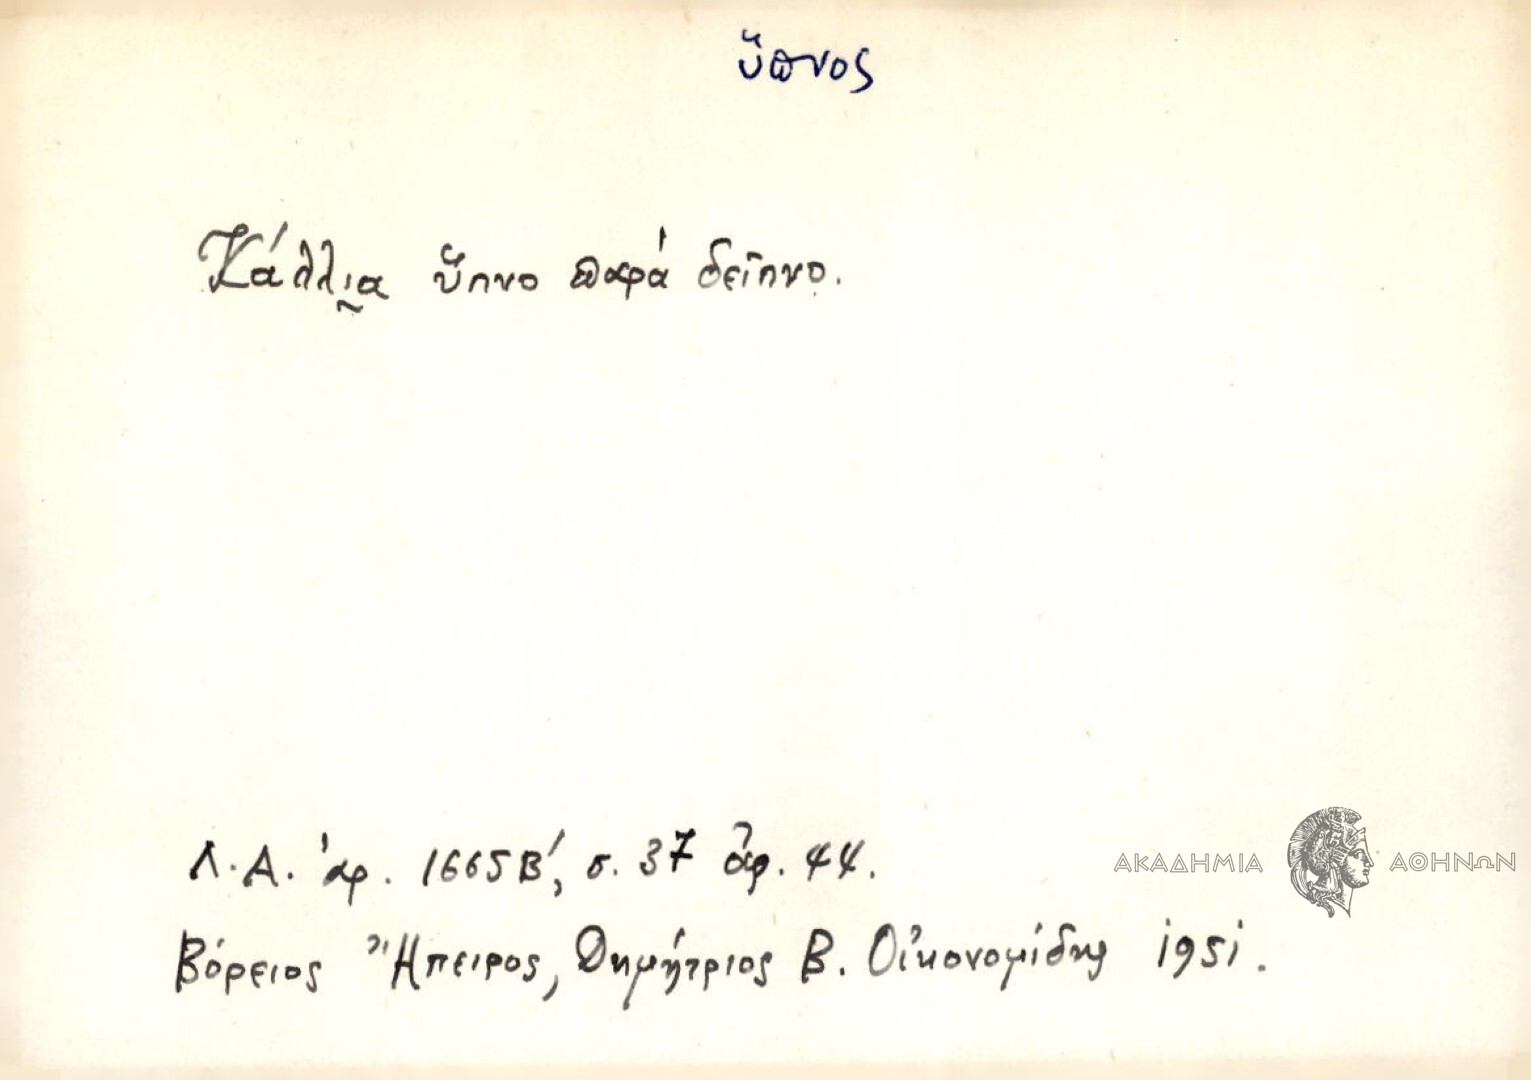 ὕπνος
Κάλλι̰α ὕπνο παρά δεῖπνο.
Λ.Α. ἀρ. 1665Β', σ. 37 ἀρ. 44.
ΑΚΑΔΗΜΙΑ ΑΘΗΝΩΝ
Βόρειος Ἤπειρος, Δημήτριος Β. Οἰκονομίδης 1951.